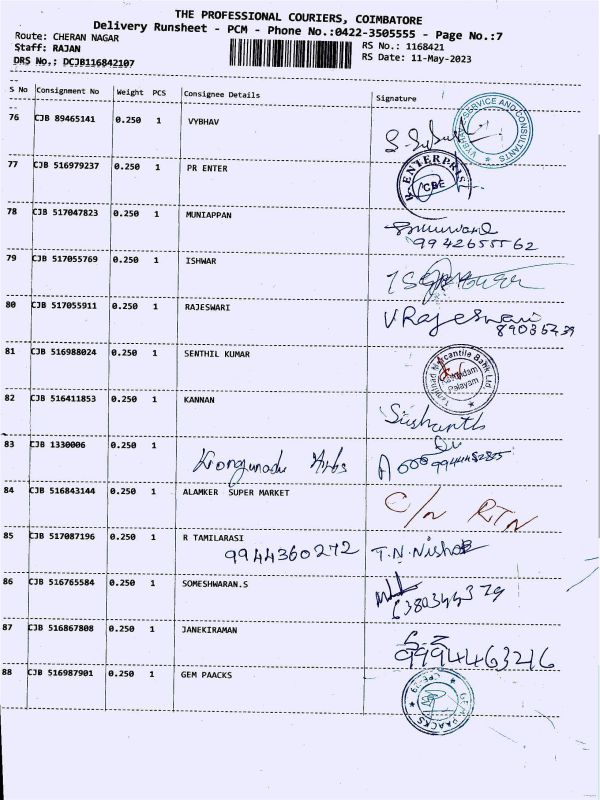 THE PROFESSIONAL COURIERS, COIMBATORE
Delivery Runsheet - PCM - Phone No.:0422-3505555 - Page No.:7
Route: CHERAN NAGAR
Staff: RAJAN
RS No.: 1168421
DRS No.; DCJB116842107
RS Date: 11-May-2023
S No Consignment No Weight PCS Consignee Details Signature
76 CJB 89465141 0.250 1 VYBHAV
SERVICE AND CONSULTANTS
77 CJB 516979237 0.250 1 PR ENTER
ENTERPRIS CBE
78 CJB 517047823 0.250 1 MUNIAPPAN
9942655562
79 CJB 517055769 0.250 1 ISHWAR
80 CJB 517055911 0.250 1 RAJESWARI V Rajeswari
81 CJB 516988024 0.250 1 SENTHIL KUMAR
Mercantile Bank Ltd. Palayam
82 CJB 516411853 0.250 1 KANNAN Sushanth
83 CJB 1330006 0.250 1 Kongunadu
84 CJB 516843144 0.250 1 ALAMKER SUPER MARKET C/n RTN
85 CJB 517087196 0.250 1 R TAMILARASI
9944360272 T.N.Nisha
86 CJB 516765584 0.250 1 SOMESHWARAN.S
87 CJB 516867808 0.250 1 JANEKIRAMAN
9994463216
88 CJB 516987901 0.250 1 GEM PAACKS